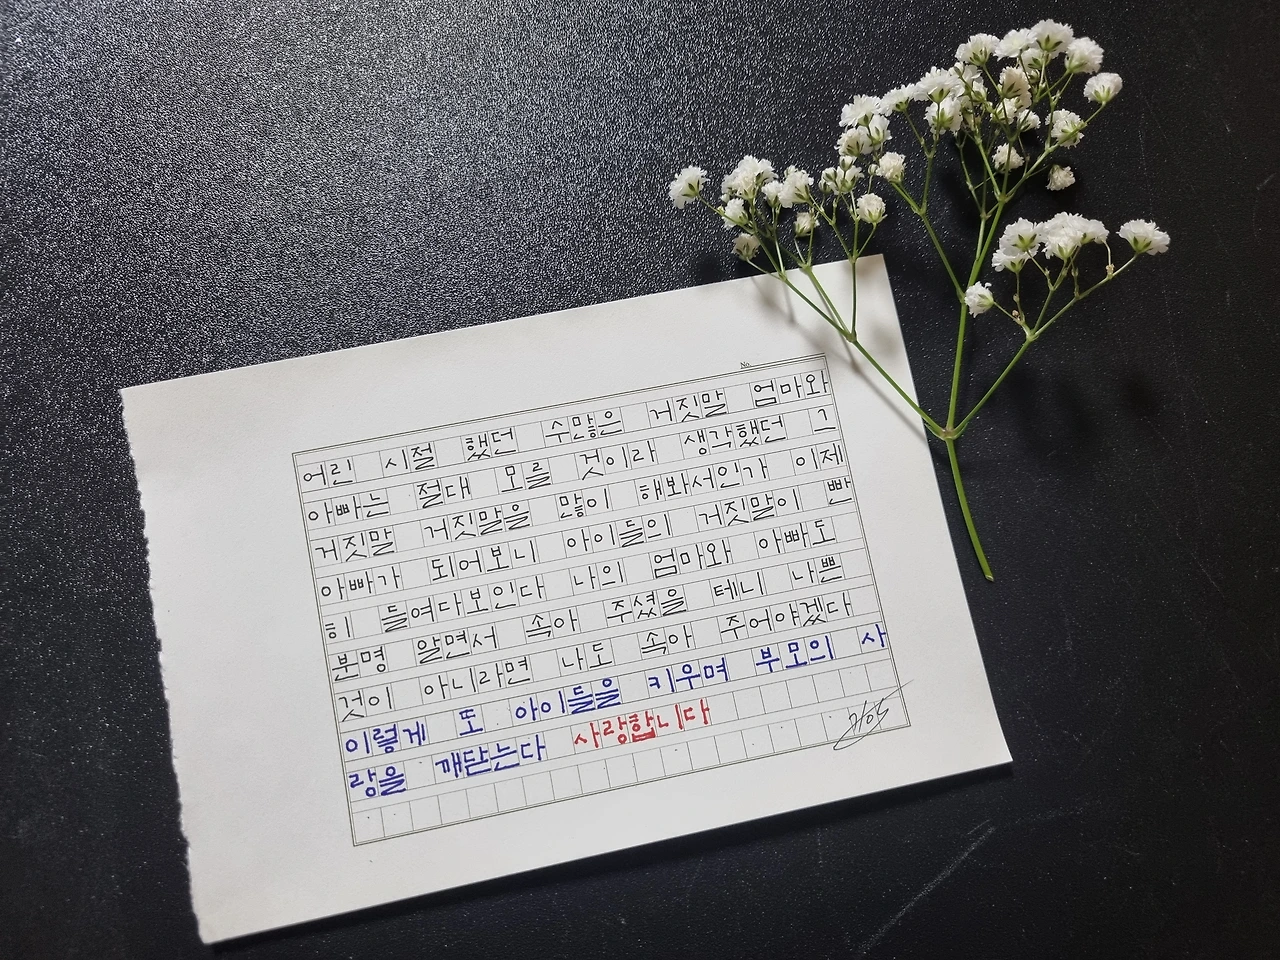 No.
어린 시절 했던 수많은 거짓말 엄마와
아빠는 절대 모를 것이라 생각했던 그
거짓말 거짓말을 많이 해봐서인가 이제
아빠가 되어보니 아이들의 거짓말이 빤
히 들여다보인다 나의 엄마와 아빠도
분명 알면서 속아 주셨을 테니 나쁜
것이 아니라면 나도 속아 주어야겠다
이렇게 또 아이들을 키우며 부모의 사
랑을 깨닫는다 사랑합니다